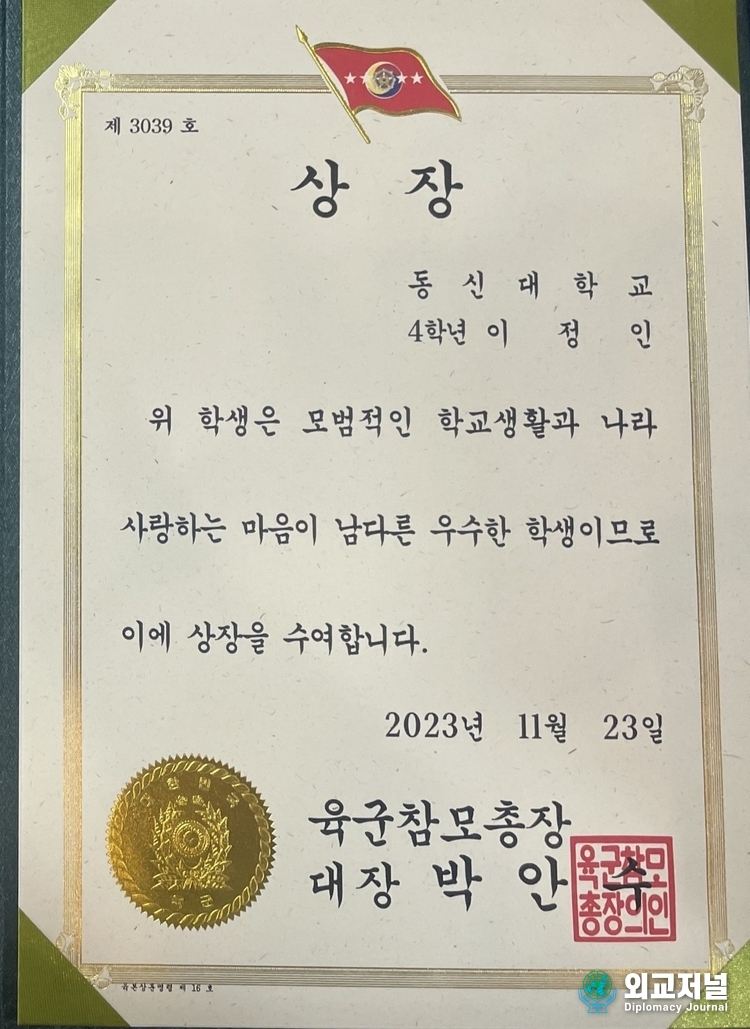 제 3039 호
상 장
동 신 대 학 교
4학년 이 정 인
위 학생은 모범적인 학교생활과 나라
사랑하는 마음이 남다른 우수한 학생이므로
이에 상장을 수여합니다.
2023년 11월 23일
육군참모총장
대장 박 안 수
육군참모
총장의인
대한민국
육군
육본상훈명령 제 16 호
외교저널
Diplomacy Journal